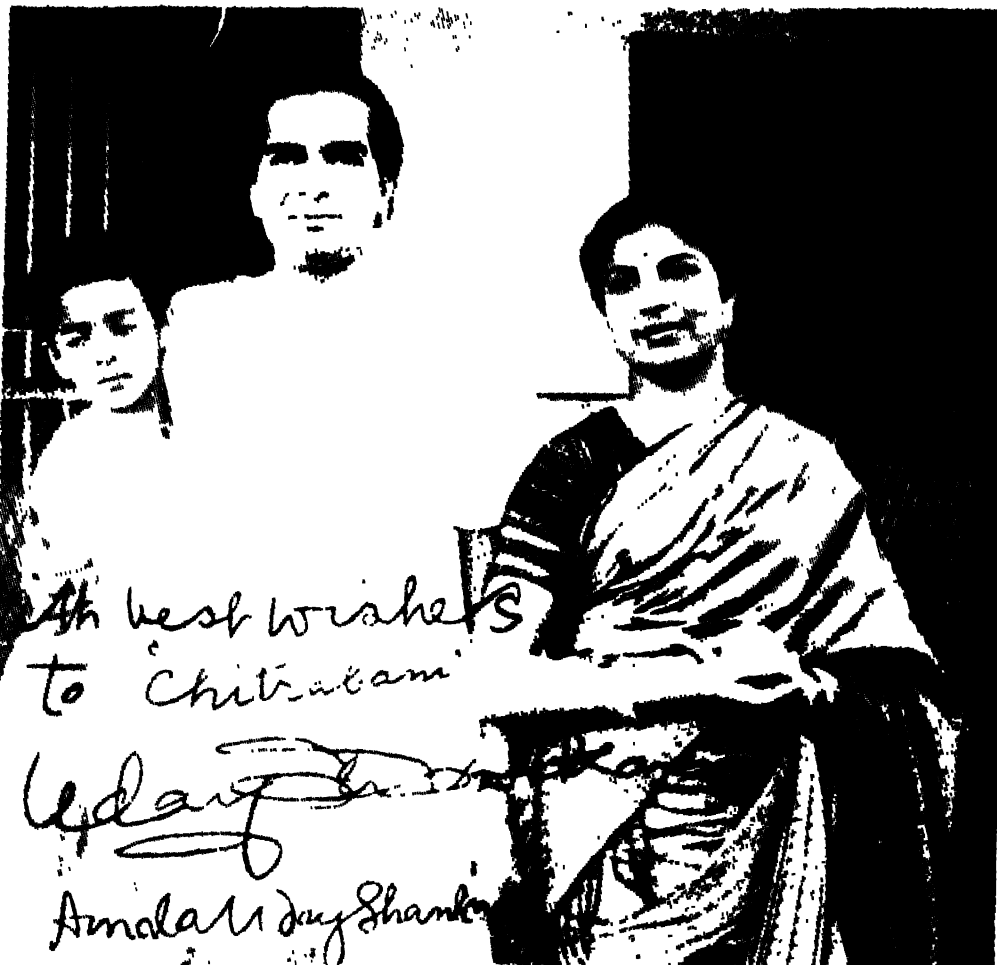 With best wishes
to 'Chitrutami'
Uday Shankar
Amala Uday Shankar